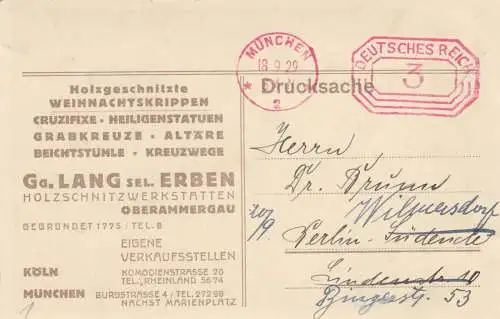 MÜNCHEN
18.9.29
2
DEUTSCHES REICH
3
Drucksache
Holzgeschnitzte
WEIHNACHTSKRIPPEN
CRUZIFIXE · HEILIGENSTATUEN
GRABKREUZE · ALTÄRE
BEICHTSTÜHLE · KREUZWEGE
Gg. LANG SEL. ERBEN
HOLZSCHNITZWERKSTÄTTEN
OBERAMMERGAU
GEGRÜNDET 1775 / TEL. 8
EIGENE
VERKAUFSSTELLEN
KÖLN KOMÖDIENSTRASSE 20
TEL. RHEINLAND 5674
MÜNCHEN BURGSTRASSE 4 / TEL. 27298
NÄCHST MARIENPLATZ
Herrn
Dr. Brunn
Wilmersdorf
Berlin-Südende
Lindenstr. 10
53